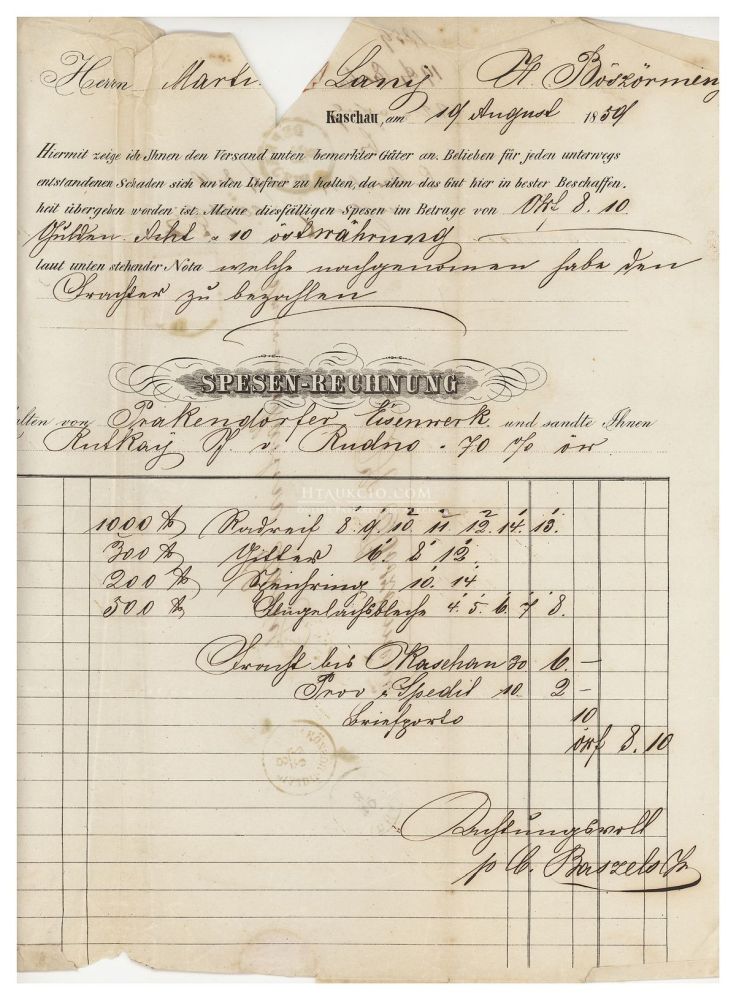 Herrn Marti. Lany H. Böszörmeny
Kaschau, am 19 August 1859
Hiermit zeige ich Ihnen den Versand unten bemerkter Güter an. Belieben für jeden unterwegs
entstandenen Schaden sich an den Lieferer zu halten, da ihm das Gut hier in bester Beschaffen-
heit übergeben worden ist. Meine diesfälligen Spesen im Betrage von Ö.W.f 8. 10.
Gulden Acht " 10 östwährung
laut unten stehender Nota welche nachgenomen habe den
Frachter zu bezahlen
SPESEN-RECHNUNG
alten von Prakendorfer Eisenwerk und sandte Ihnen
Rutkay v. Rudno - 70 % öw
HTAUKCIO.COM
1000 ℔ Radreif 8. 9. 10. 11. 12. 14. 13.
300 ℔ Gitter 6. 8. 12.
200 ℔ 10. 14
500 ℔ 4. 5. 6. 7. 8.
Fracht bis Kaschau 30 6. —
Prov & Spedit 10. 2 —
Briefporto 10
öwf 8. 10
Achtungsvoll
p C. Baszels